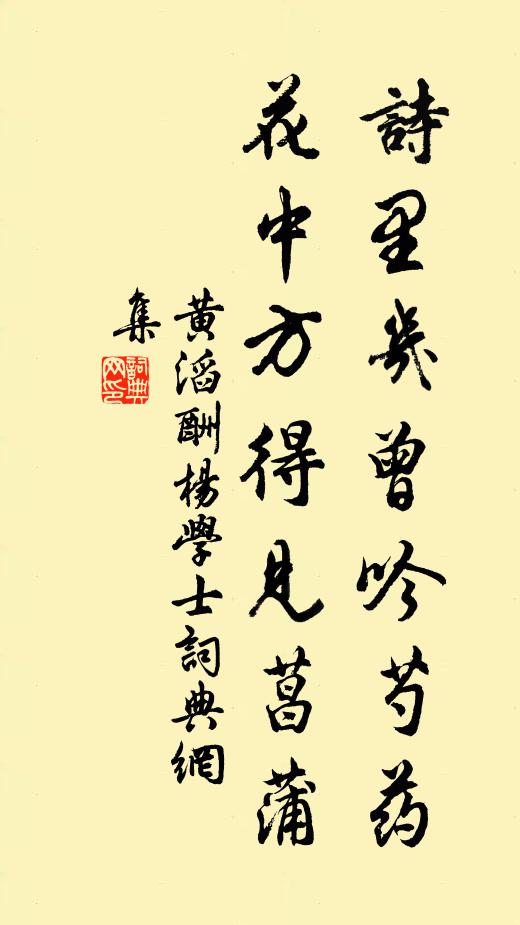 詩里幾曾吟芍药
花中方得見菖蒲
黃滔酬楊學士詞典網
集
詞典
网印